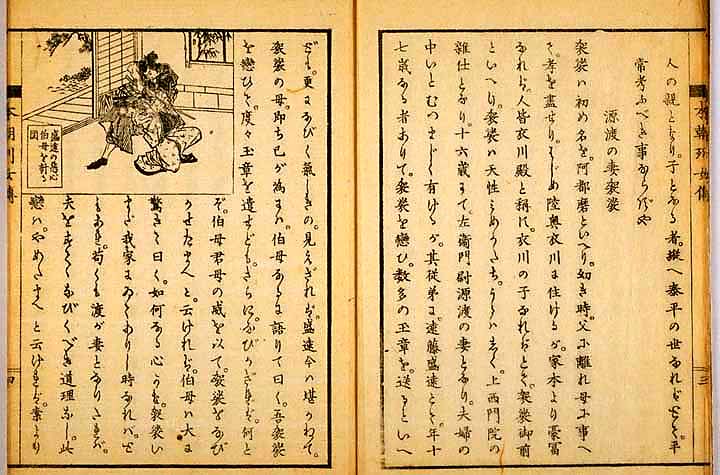 人の親となり。子となる者。縦へ泰平の世なれば迚。平
常考ふべき事ならずや
源渡の妻袈裟
袈裟ハ初め名を。阿都磨といへり。幼き時。父に離れ母に事へ
て。孝を盡せり。はじめ陸奥衣川に住けるが。家本より豪冨
なれば。人皆衣川殿と稱れ。衣川の子なればとて。袈裟御前
といへり。袈裟ハ天性みめかたち。うるハしく。上西門院の
雜仕となり。十六歳にて。左衛門尉源渡の妻となり。夫婦の
中いとむつましく有けるが。其従弟に。遠藤盛遠とて。年十
七歳なる者ありて。袈裟を戀ひ。数多の玉章を。送るといへ
三
ども。更になびく氣しきの。見えざれば。盛遠今ハ堪かねて。
袈裟の母。即ち己が為にハ。伯母なるに語りて曰く。吾袈裟
を戀ひて。度々玉章を遣せども。さらに。なびかざれば。何と
ぞ。伯母君母の威を以て。袈裟をなび
かせたまへと。云けれバ。伯母ハ大に
驚きて曰く。如何なる心かも。袈裟い
まだ我家に。ありし時なれバ。と
もあれ。苟くも渡が妻となりたれば。
夫をすてゝなびくべき道理なし。此
戀ハ。やめたまへと云けれども。業より
盛遠の
伯母を
図
本朝列女傳
四